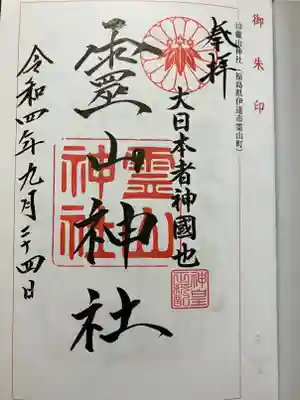 御朱印
㊞霊山神社（福島県伊達市霊山町）
奉拝
大日本者神國也
靈山神社
霊山
神社
令和四年九月二十四日